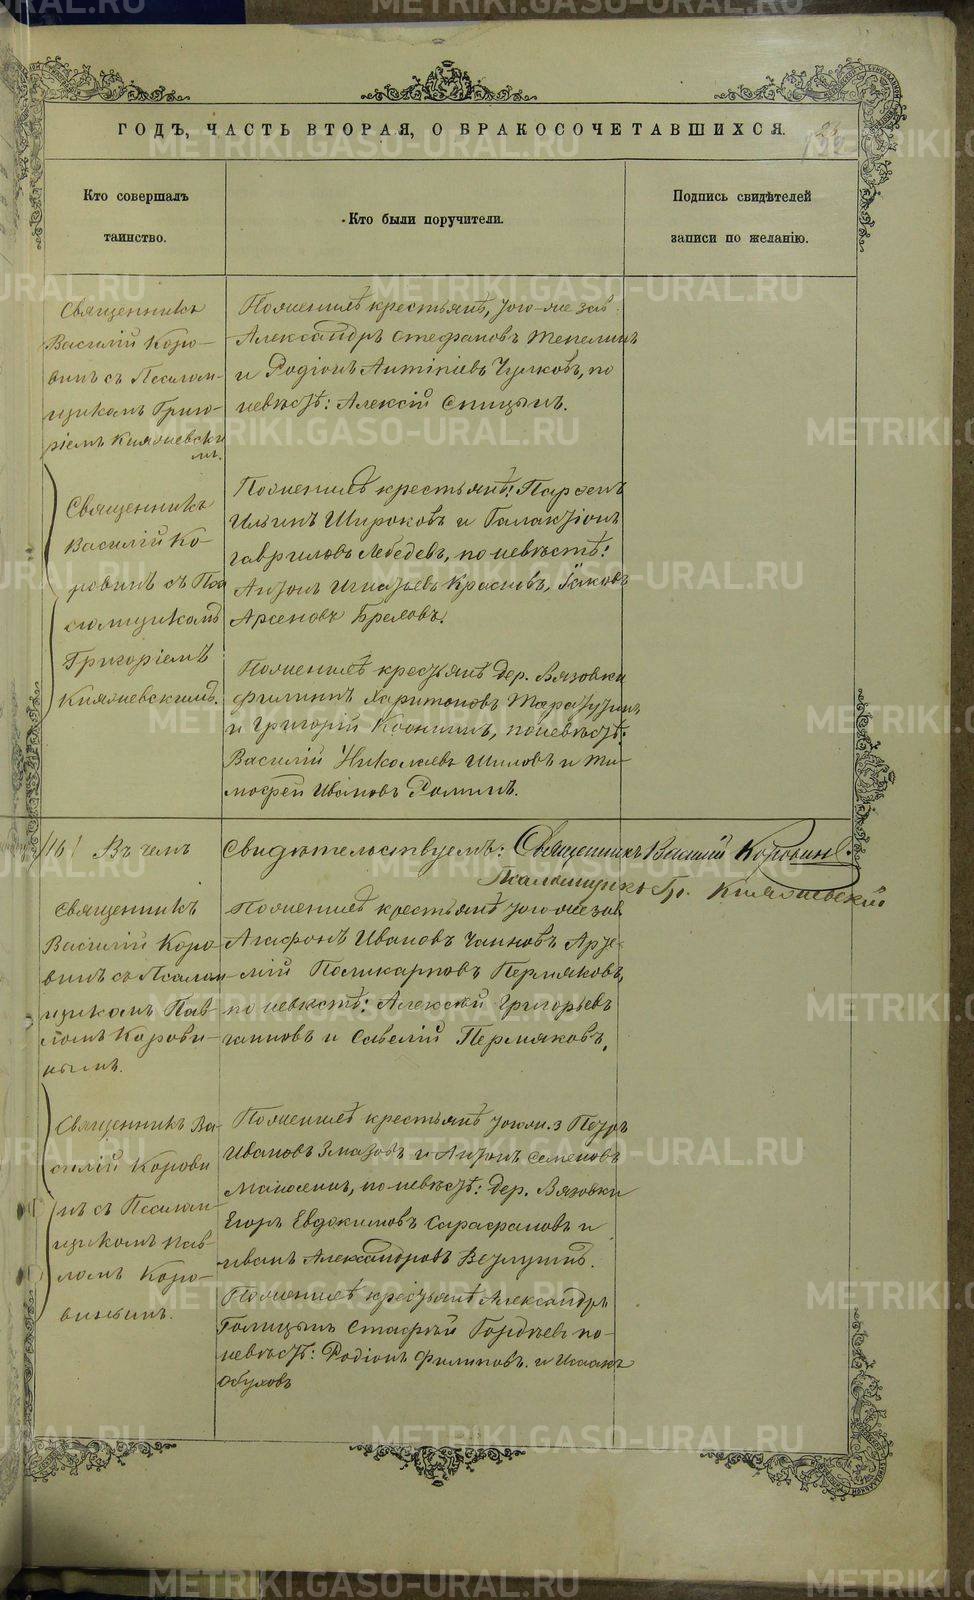 ГОДЪ, ЧАСТЬ ВТОРАЯ, О БРАКОСОЧЕТАВШИХСЯ.
Кто совершалъ
таинство.
Кто были поручители.
Подпись свидѣтелей
записи по желанію.
Священникъ
Василій Коро-
винъ съ Псалом-
щикомъ Григо-
ріемъ Княжевски
мъ.
По женихѣ крестьянѣ, того-же зав.
Александръ Стефановъ Тепелинъ
и Родіонъ Антиніевъ Чулковъ, по
невѣстѣ: Алексій Спицынъ.
Священникъ
Василій Ко-
ровинъ съ Пса
ломщикомъ
Григоріемъ
Княжевскимъ.
По женихѣ крестьянѣ: Парѳенъ
Ильинъ Широковъ и Галактіонъ
Гавриловъ Лебедевъ, по невѣстѣ:
Антонъ Игнатьевъ Красновъ, Іаковъ
Арсеновъ Бреховъ.
По женихѣ крестьянѣ дер. Вязовки
Филиппъ Харитоновъ Таратунинъ
и Григорій Коснинъ, по невѣстѣ:
Василій Николаевъ Шиловъ и Ти-
моѳей Ивановъ Роминъ.
/16/ Въ чемъ
свидѣтельствуемъ: Священникъ Василій Коровинъ.
Псаломщикъ Гр. Княжевскій
Священникъ
Василій Коро-
винъ съ Псалом-
щикомъ Пав-
ломъ Корови-
нымъ.
По женихѣ крестьянѣ того-же зав.
Агафонъ Ивановъ Чаиновъ Арте-
мій Поликарповъ Пермяковъ,
по невѣстѣ: Алексѣй Григорьевъ
Чаиновъ и Савелій Пермяковъ.
Священникъ Ва-
силій Корови
нъ съ Псалом-
щикомъ Пав-
ломъ Коро-
винымъ.
По женихѣ крестьянѣ того ж. з Петръ
Ивановъ и Антонъ Семеновъ
по невѣстѣ: дер. Вязовки
Егоръ Евдокимовъ Сарафановъ и
Иванъ Александровъ Ветлугинъ.
По женихѣ крестьянѣ Александръ
Голицынъ Стафѣй Гордѣевъ по-
невѣстѣ: Родіонъ Филиповъ. и Исаакъ
Обуховъ
METRIKI.GASO-URAL.RU